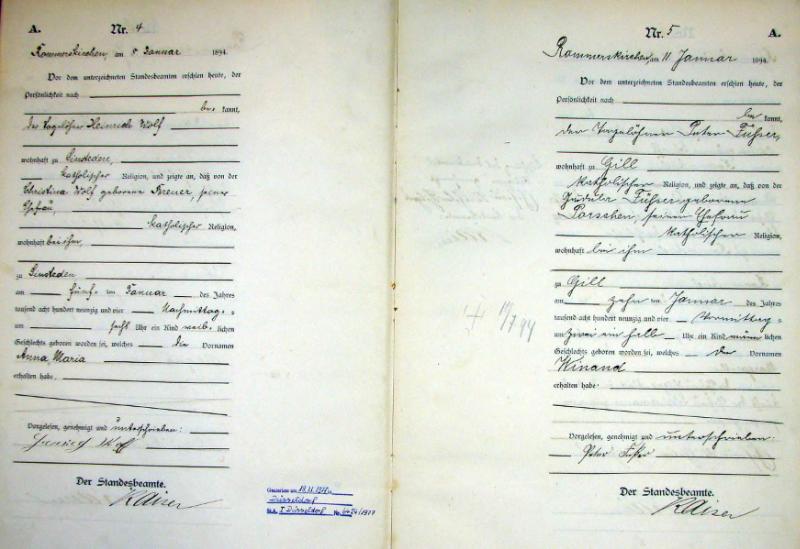 A.
Nr. 4
Rommerskirchen, am 8 Januar 1894.
Vor dem unterzeichneten Standesbeamten erschien heute, der
Persönlichkeit nach
be. kannt,
der Tagelöhner Heinrich Wolf
wohnhaft zu Sinsteden,
katholischer Religion, und zeigte an, daß von der
Christina Wolf geborene Breuer, seiner
Ehefrau,
katholischer Religion,
wohnhaft bei ihm
zu Sinsteden
am fünf ten Januar des Jahres
tausend acht hundert neunzig und vier Nachmittags
um Uhr ein Kind weib lichen
Geschlechts geboren worden sei, welches die Vornamen
Anna, Maria
erhalten habe.
Vorgelesen, genehmigt und unterschrieben:
Heinrich Wolf
Der Standesbeamte.
Kaiser
Düsseldorf
Düsseldorf
Nr. 5
A.
Rommerskirchen, am 11 Januar 1894.
Vor dem unterzeichneten Standesbeamten erschien heute, der
Persönlichkeit nach
be kannt,
der Tagelöhner Peter Füsser,
wohnhaft zu Gill
katholischer Religion, und zeigte an, daß von der
Füsser geborene
Porschen, seiner Ehefrau
katholischer Religion,
wohnhaft bei ihm
zu Gill
am zehn ten Januar des Jahres
tausend acht hundert neunzig und vier Vormittags
um zwei ein halb Uhr ein Kind männ lichen
Geschlechts geboren worden sei, welches den Vornamen
Winand
erhalten habe.
Vorgelesen, genehmigt und unterschrieben:
Peter Füsser
Der Standesbeamte.
Kaiser